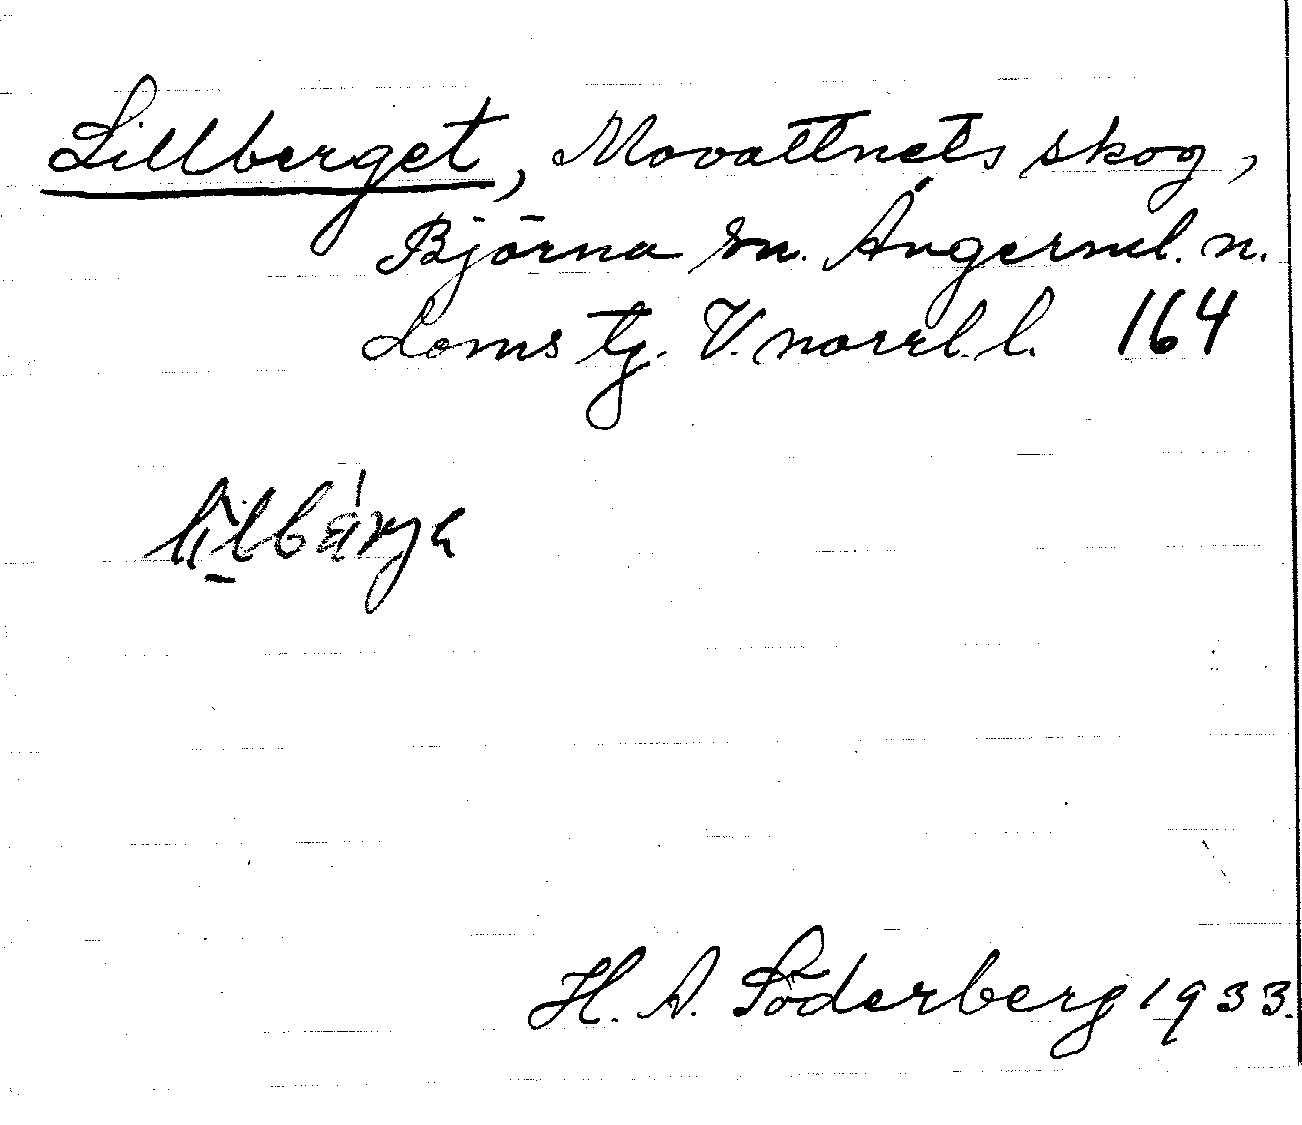 Lillberget, Movattnets skog,
Björna sn. Ångerml. n.
Doms tg. V. norrl. l. 164
H. A. Söderberg 1933.